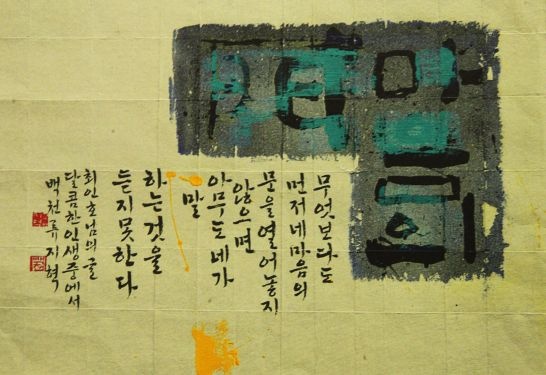 무엇보다도
먼저네마음의
문을열어놓지
않으면
아무도네가
말
하는것을
듣지못한다
최인호님의글
달콤한인생중에서
백천류지혁